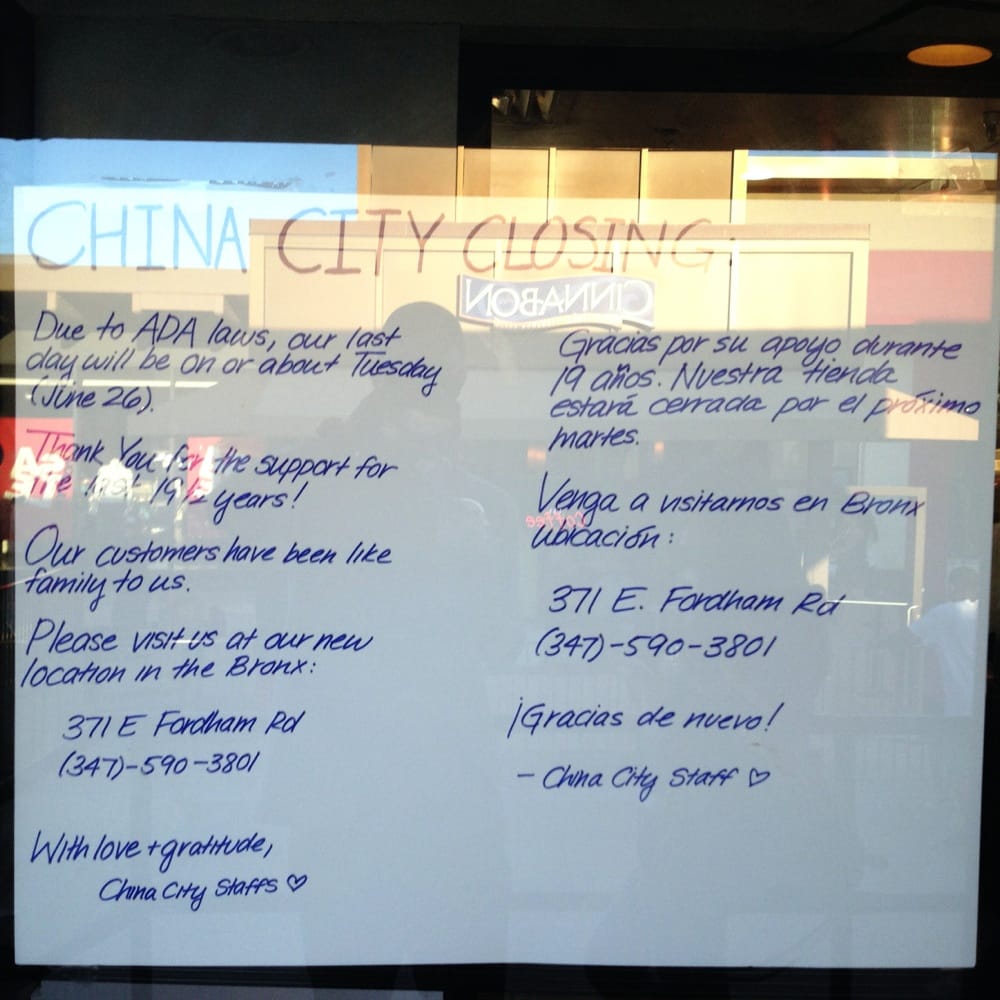 CHINA CITY CLOSING
Due to ADA laws, our last
day will be on or about Tuesday
(June 26).
Thank You for the support for
the last 19 1/2 years!
Our customers have been like
family to us.
Please visit us at our new
location in the Bronx:
371 E Fordham Rd
(347)-590-3801
With love + gratitude,
China City Staffs ♡
Gracias por su apoyo durante
19 años. Nuestra tienda
estará cerrada por el próximo
martes.
Venga a visitarnos en Bronx
ubicación:
371 E. Fordham Rd
(347)-590-3801
¡Gracias de nuevo!
- China City Staff ♡
CINNABON
Coffee